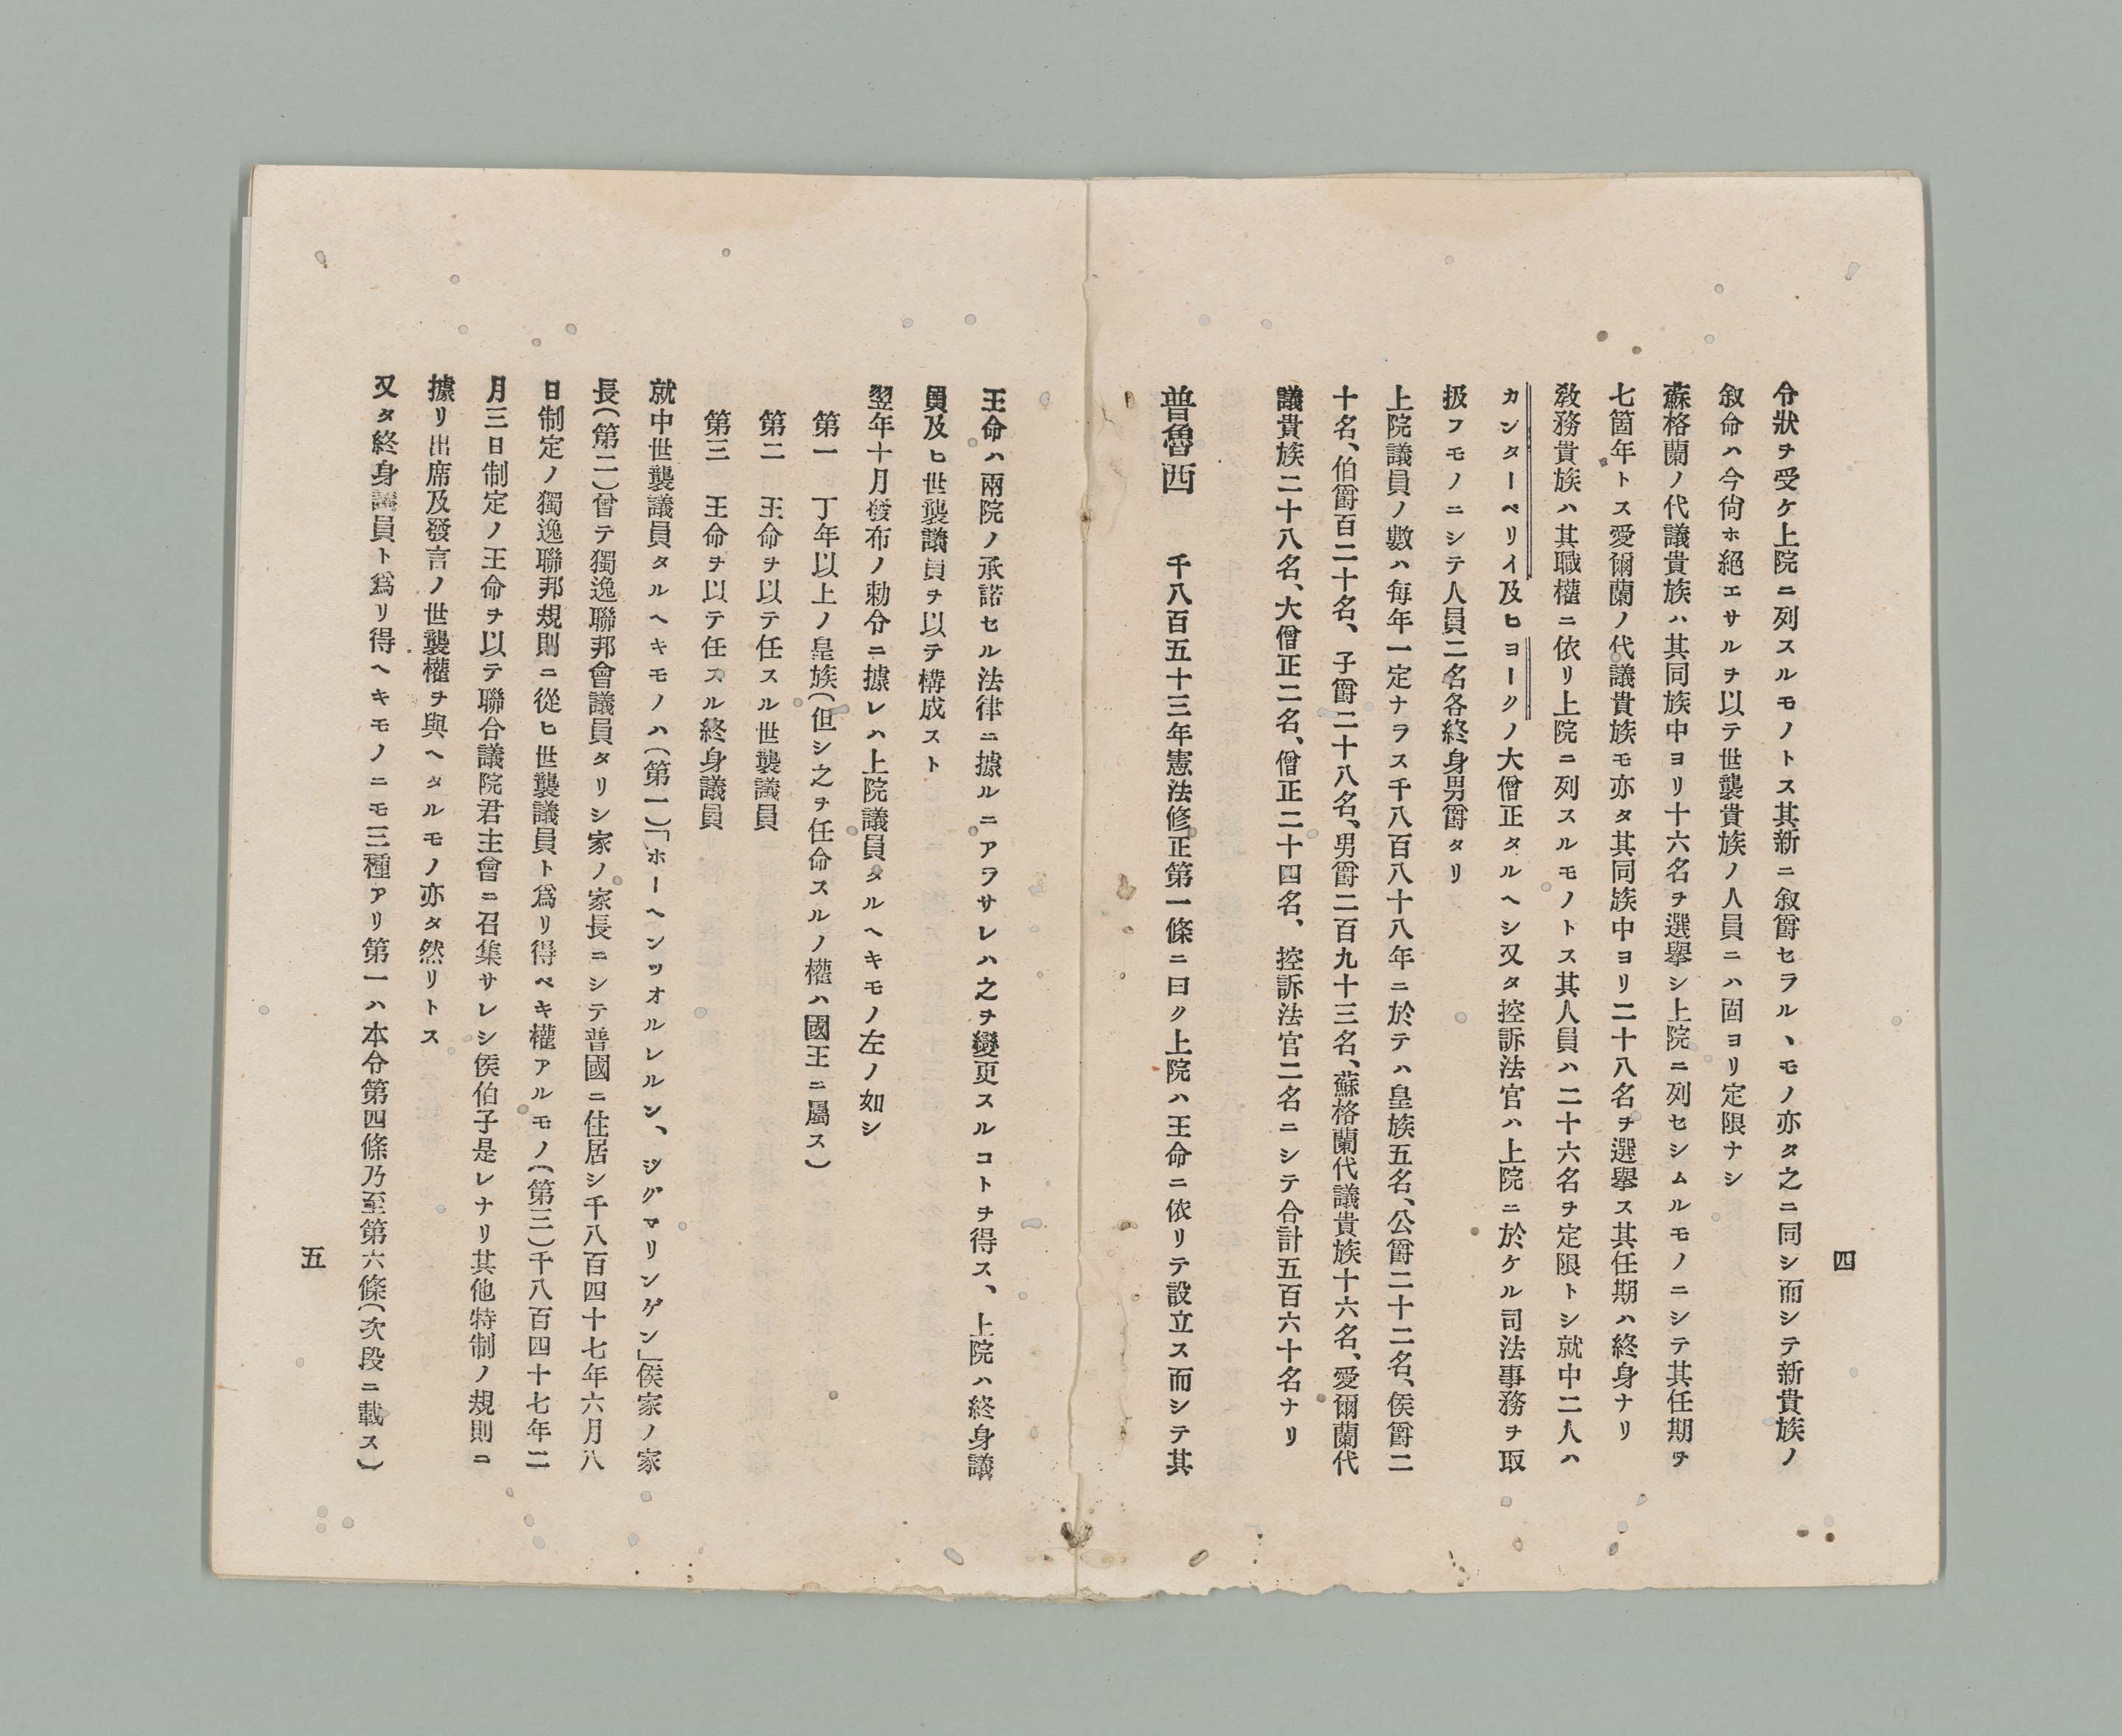 四
令狀ヲ受ケ上院ニ列スルモノトス其新ニ叙爵セラル、モノ亦タ之ニ同シ而シテ新貴族ノ
叙命ハ今尙ホ絕エサルヲ以テ世襲貴族ノ人員ニハ固ヨリ定限ナシ
蘇格蘭ノ代議貴族ハ其同族中ヨリ十六名ヲ選擧シ上院ニ列セシムルモノニシテ其任期ヲ
七箇年トス愛爾蘭ノ代議貴族モ亦タ其同族中ヨリ二十八名ヲ選擧ス其任期ハ終身ナリ
敎務貴族ハ其職權ニ依リ上院ニ列スルモノトス其人員ハ二十六名ヲ定限トシ就中二人ハ
カンターベリイ及ヒヨークノ大僧正タルヘシ又タ控訴法官ハ上院ニ於ケル司法事務ヲ取
扱フモノニシテ人員二名各終身男爵タリ
上院議員ノ數ハ每年一定ナラス千八百八十八年ニ於テハ皇族五名、公爵二十二名、侯爵二
十名、伯爵百二十名、子爵二十八名、男爵二百九十三名、蘇格蘭代議貴族十六名、愛爾蘭代
議貴族二十八名、大僧正二名、僧正二十四名、控訴法官二名ニシテ合計五百六十名ナリ
普魯西　千八百五十三年憲法修正第一條ニ曰ク上院ハ王命ニ依リテ設立ス而シテ其
王命ハ兩院ノ承諾セル法律ニ據ルニアラサレハ之ヲ變更スルコトヲ得ス、上院ハ終身議
員及ヒ世襲議員ヲ以テ構成スト
翌年十月發布ノ勅令ニ據レハ上院議員タルヘキモノ左ノ如シ
第一　丁年以上ノ皇族(但シ之ヲ任命スルノ權ハ國王ニ屬ス)
第二　王命ヲ以テ任スル世襲議員
第三　王命ヲ以テ任スル終身議員
就中世襲議員タルヘキモノハ(第一)「ホーヘンツオルレルン、ジグマリンゲン」侯家ノ家
長(第二)曾テ獨逸聯邦會議員タリシ家ノ家長ニシテ普國ニ住居シ千八百四十七年六月八
日制定ノ獨逸聯邦規則ニ從ヒ世襲議員ト爲リ得ベキ權アルモノ(第三)千八百四十七年二
月三日制定ノ王命ヲ以テ聯合議院君主會ニ召集サレシ侯伯子是レナリ其他特制ノ規則ニ
據リ出席及發言ノ世襲權ヲ與ヘタルモノ亦タ然リトス
又タ終身議員ト爲リ得ヘキモノニモ三種アリ第一ハ本令第四條乃至第六條(次段ニ載ス)
五